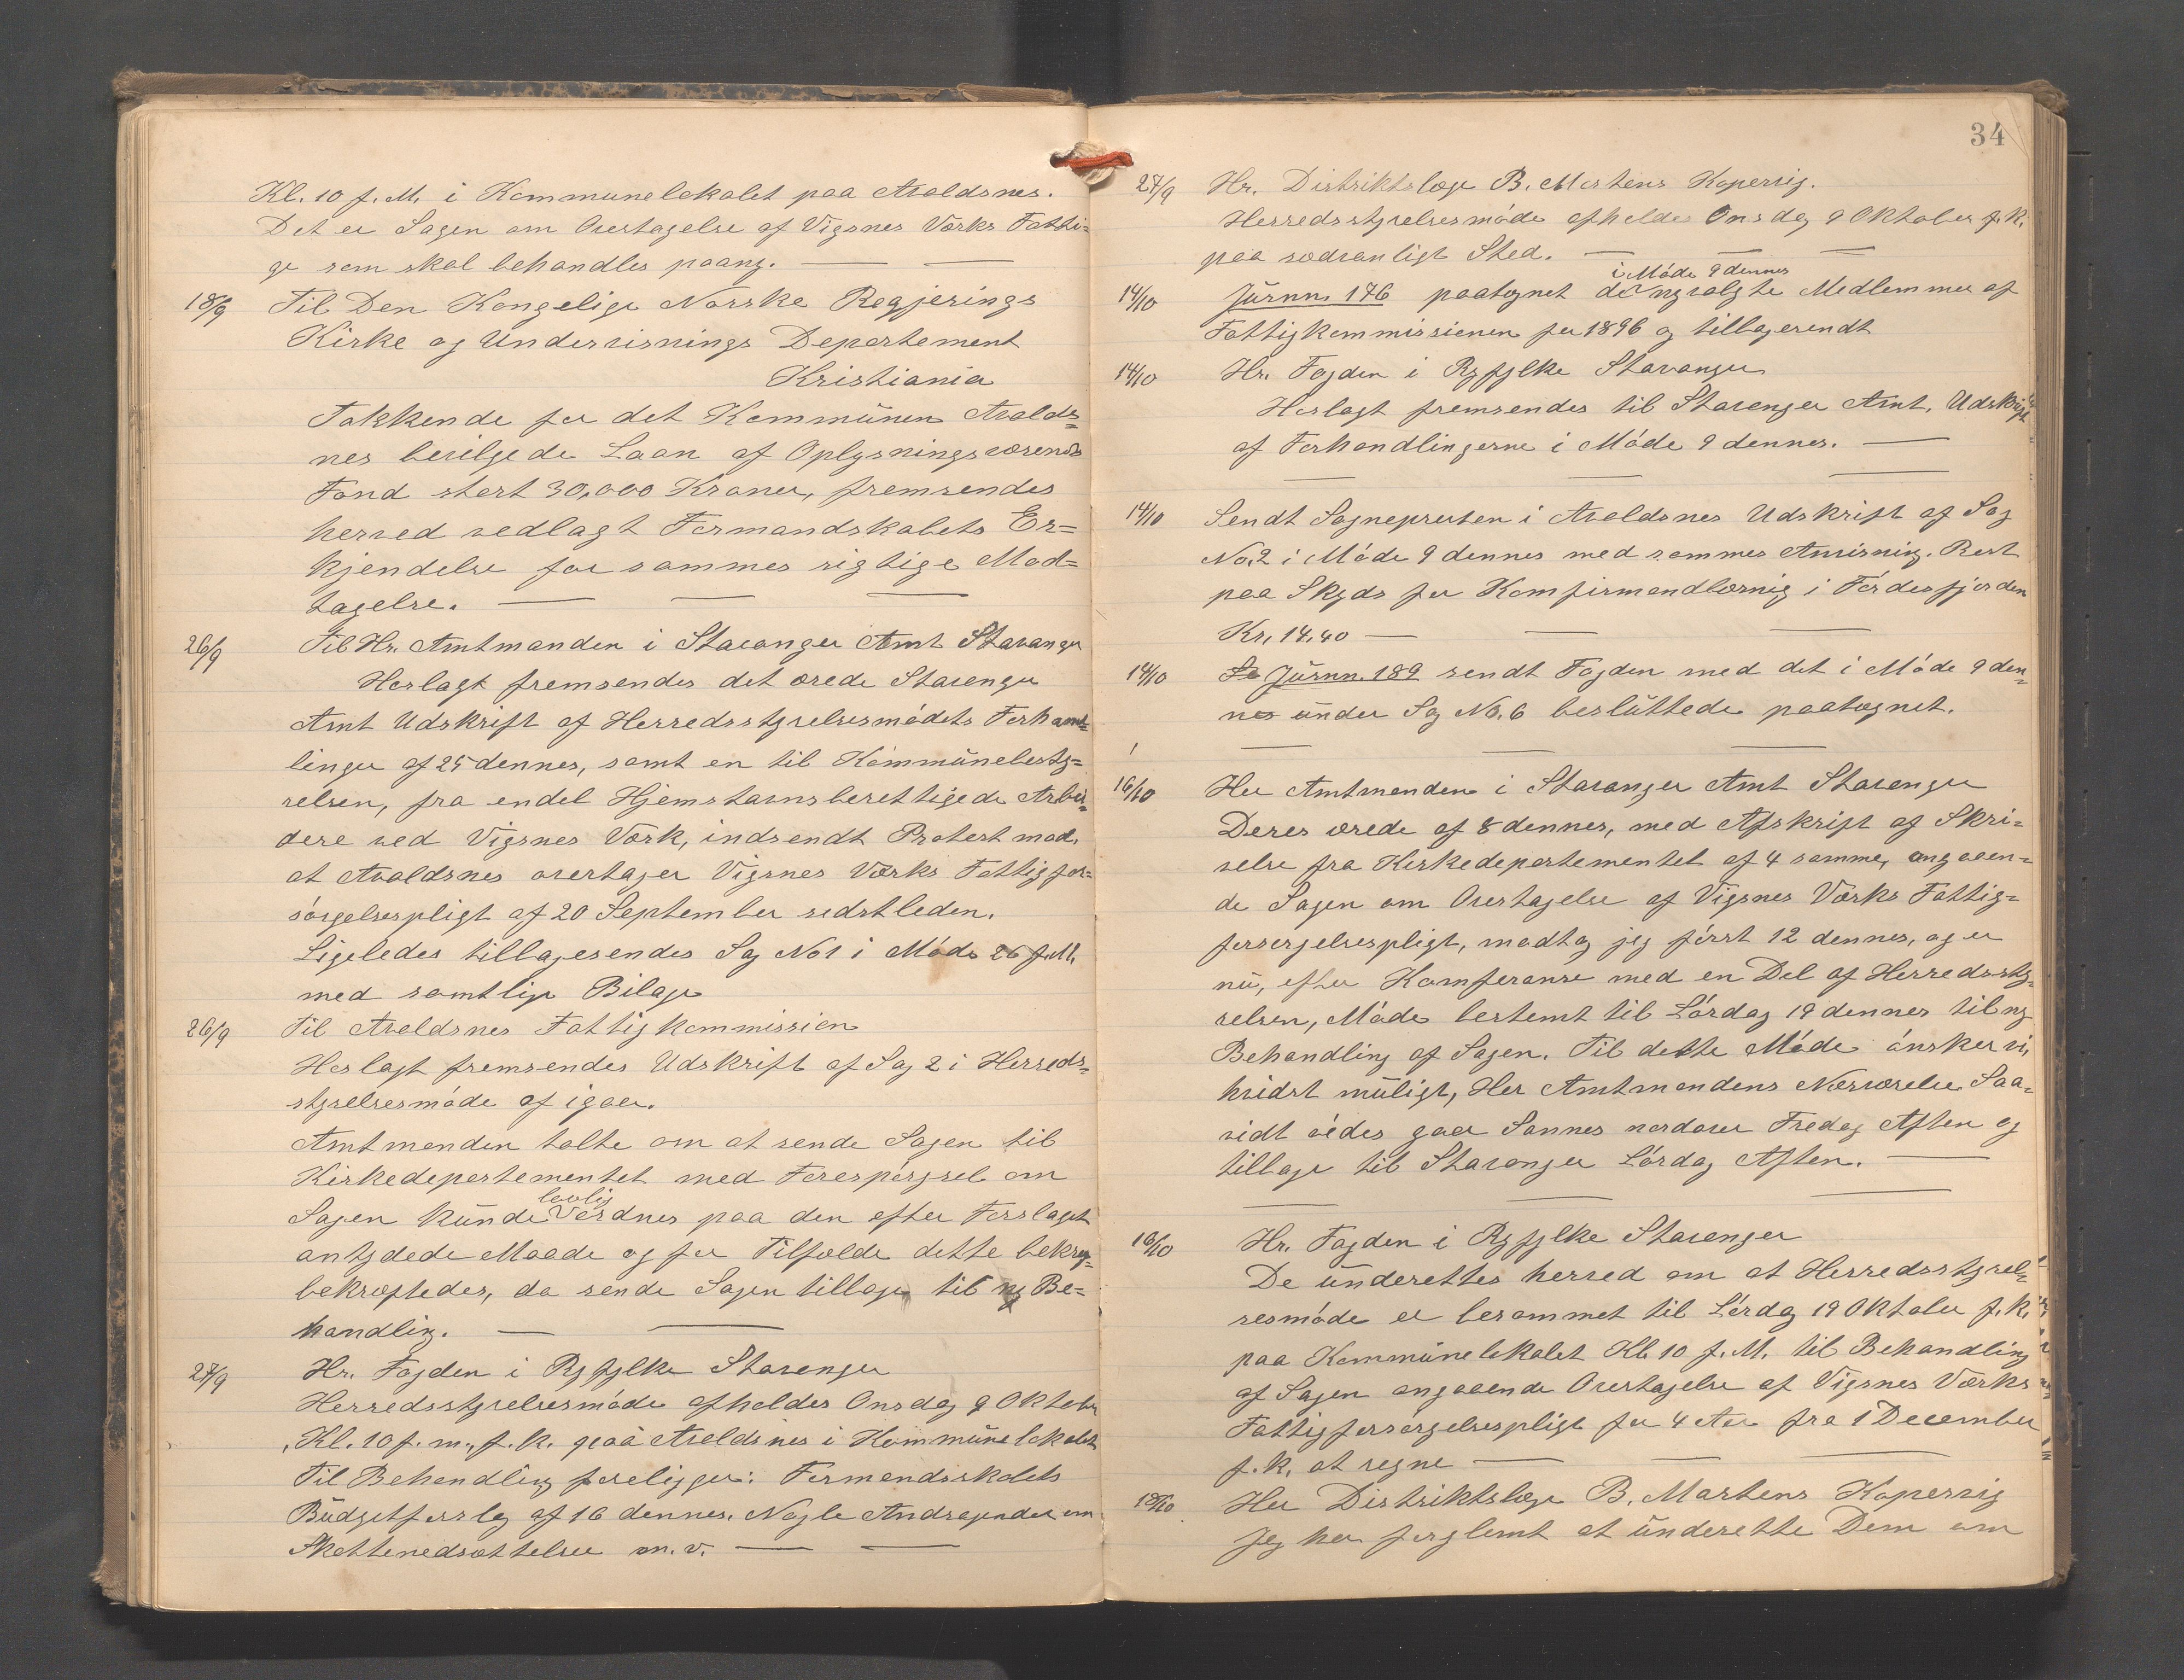 Kl. 10 f. M. i Kommunelokalet paa Avaldsnes.
Det er Sagen om Overtagelse af Vigsnes Værks Fatti-
ge som skal behandles paany. — —
18/9 Til Den Kongelige Norske Regjerings
Kirke og Undervisnings Departement
Kristiania
Takkende for det Kommunen Avalds=
nes bevilgede Laan af Oplysningsvæsenets
Fond stort 30,000 Kroner, fremsendes
herved vedlagt Formandskabets Er=
kjendelse for sammes rigtige Mod=
tagelse. — — —
26/9 Til Hr. Amtmanden i Stavanger Amt Stavanger
Herlagt fremsendes det ærede Stavanger
Amt Udskrift af Herredsstyrelsesmødets Forhand=
linger af 25 dennes, samt en til Kommunebesty=
relsen, fra endel Hjemstavnsberettigede Arbei=
dere ved Vigsnes Værk, indsendt Protest mod,
at Avaldsnes overtager Vigsnes Værks Fattigfor=
sørgelsespligt af 20 September sidstleden.
Ligeledes tilbagesendes Sag No 1 i Møde 26 f. M.
med samtlige Bilage
26/9 Til Avaldsnes Fattigkommission
Herlagt fremsendes Udskrift af Sag 2 i Herreds-
styrelsesmøde af igaar.
Amtmanden talte om at sende Sagen til
Kirkedepartementet med Forespørgsel om
Sagen kunde lovlig ordnes paa den efter Forslaget
antydede Maade og for Tilfælde dette bekræf-
bekræftedes, da sende Sagen tilbage til ny Be=
handling. — —
27/9 Hr. Fogden i Ryfylke Stavanger
Herredsstyrelsesmøde afholdes Onsdag 9 Oktober
Kl. 10 f. m., f. k. paa Avaldsnes i Kommunelokalet
Til Behandling foreligger: Formandsskabets
Budgetforslag af 16 dennes. Nogle Andragender om
Skattenedsættelse m. v. — —
34
27/9 Hr. Distriktslæge B. Martens Kopervig.
Herredsstyrelsesmøde afholdes Onsdag 9 Oktober f. k.
paa sædvanligt Sted. — — —
i Møde 9 dennes
14/10 Journ. 176 paategnet de nyvalgte Medlemmer af
Fattigkommissionen for 1896 og tilbagesendt
14/10 Hr. Fogden i Ryfylke Stavanger
Herlagt fremsendes til Stavanger Amt, Udskrift
af Forhandlingerne i Møde 9 dennes. —
— — —
14/10 Sendt Sognepresten i Avaldsnes Udskrift af Sag
No. 2 i Møde 9 dennes med sammes Anvisning. Rest
paa Skyds for Komfirmandlæsnig i Førdesfjorden
Kr. 14.40 — — —
14/10 Sa Journ. 189 sendt Fogden med det i Møde 9 den-
nes under Sag No. 6 besluttede paategnet.
— — —
16/10 Her Amtmanden i Stavanger Amt Stavanger
Deres ærede af 8 dennes, med Afskrift af Skri=
velse fra Kirkedepartementet af 4 samme, angaaen=
de Sagen om Overtagelse af Vigsnes Værks Fattig=
forsørgelsespligt, modtog jeg først 12 dennes, og er
nu, efter Komferanse med en Del af Herredssty-
relsen, Møde bestemt til Lørdag 19 dennes til ny
Behandling af Sagen. Til dette Møde ønsker vi,
hvidst muligt, Her Amtmandens Nærværelse. Saa-
vidt vides gaar Sonnes nordover Fredag Aften og
tilbage til Stavanger Lørdag Aften. —
— — —
16/10 Hr. Fogden i Ryfylke Stavanger
De underettes herved om at Herredsstyrel-
sesmøde er berammet til Lørdag 19 Oktober f. k.
paa Kommunelokalet Kl. 10 f. M. til Behandling
af Sagen angaaende Overtagelse af Vigsnes Værks
Fattigforsørgelsespligt for 4 Aar fra 1 December
f. k. at regne — — —
18/10 Her Distriktslæge B. Martens Kopervig
Jeg har forglemt at underette Dem om